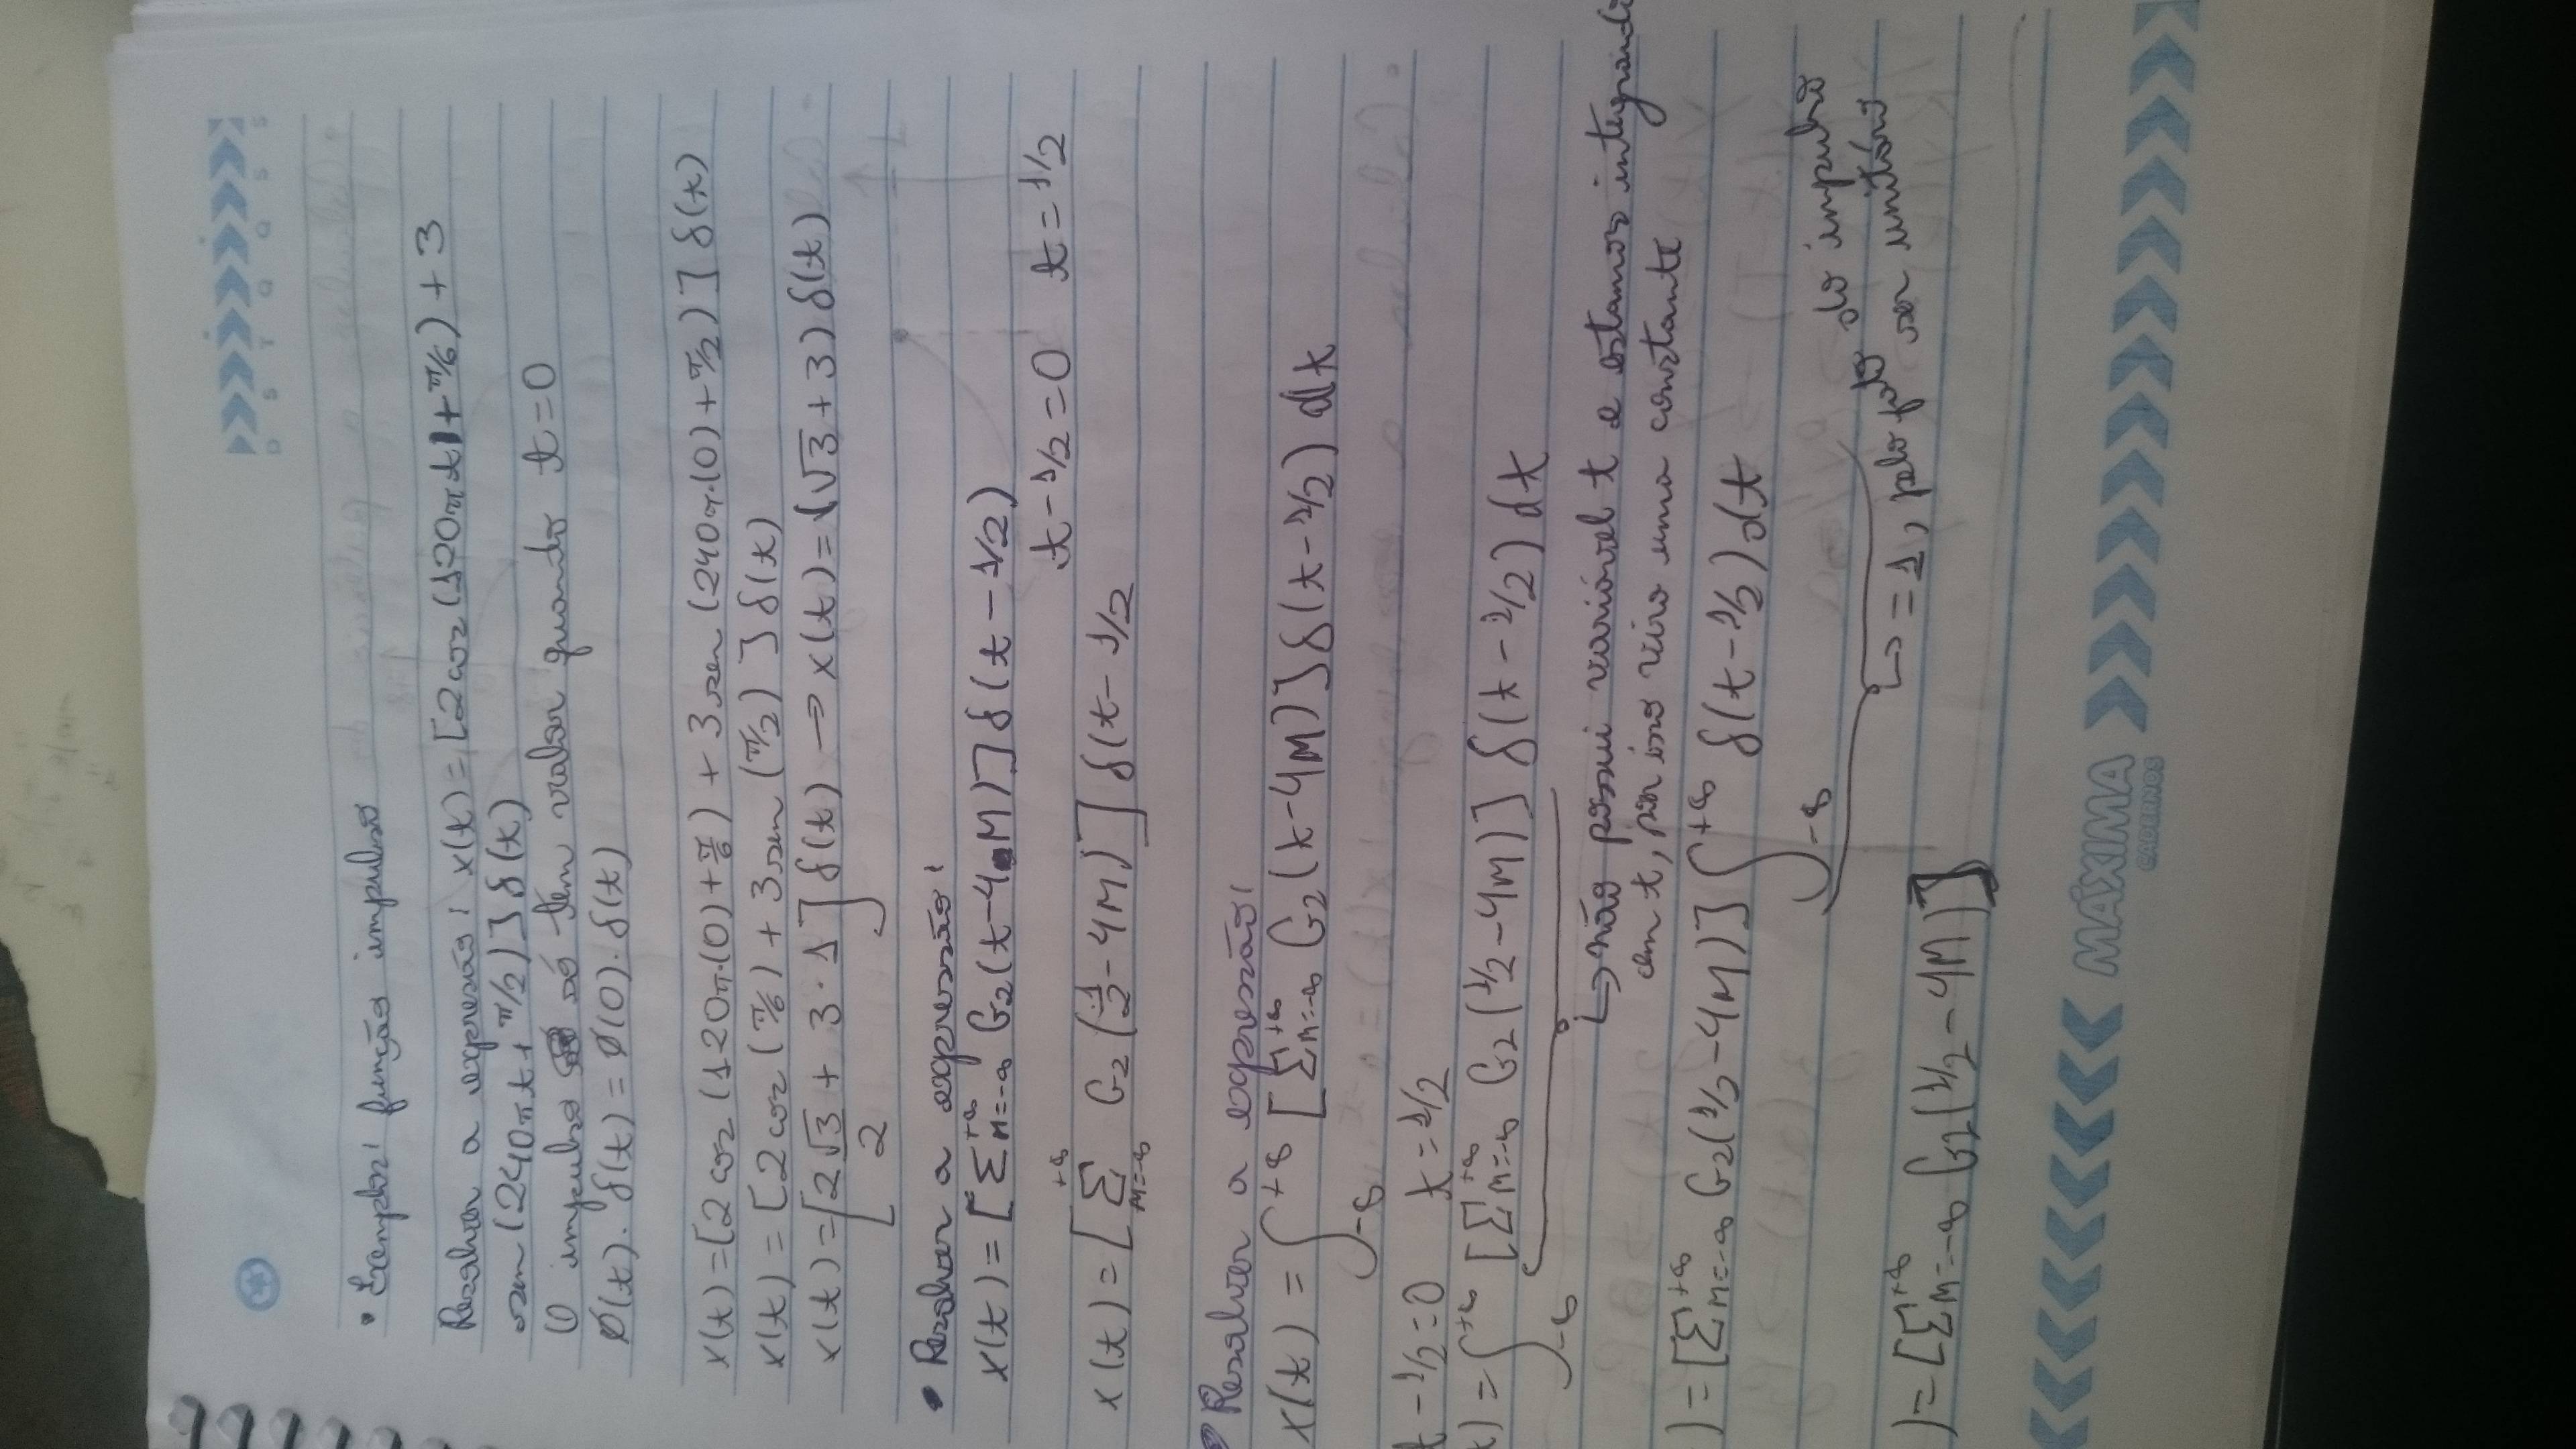 D S T Q Q S S
• Exemplos: função impulso
Resolver a expressão: x(t) = [2cos(120πt + π/6) + 3
sen(240πt + π/2)] δ(t)
O impulso só tem valor quando t=0
Ø(t). δ(t) = Ø(0). δ(t)
x(t) = [2cos(120π.(0) + π/6) + 3sen(240π.(0) + π/2)] δ(t)
x(t) = [2cos(π/6) + 3sen(π/2)] δ(t)
x(t) = [2√3/2 + 3·1] δ(t) → x(t) = (√3 + 3) δ(t)
• Resolver a expressão:
x(t) = [Σ_{m=-∞}^{+∞} G2(t-4.M)] δ(t - 1/2)
t - 1/2 = 0 t = 1/2
x(t) = [Σ_{m=-∞}^{+∞} G2(1/2 - 4M)] δ(t - 1/2
• Resolver a expressão:
x(t) = ∫_{-∞}^{+∞} [Σ_{m=-∞}^{+∞} G2(t-4M)] δ(t-1/2) dt
t - 1/2 = 0 t = 1/2
t) = ∫_{-∞}^{+∞} [Σ_{m=-∞}^{+∞} G2(1/2-4M)] δ(t-1/2) dt
↳ não possui variável t e estamos integrando
em t, por isso vira uma constante
) = [Σ_{m=-∞}^{+∞} G2(1/2-4M)] ∫_{-∞}^{+∞} δ(t-1/2) dt
↳ = 1, pelo fato do impulso
ser unitário
) = [Σ_{m=-∞}^{+∞} G2(1/2-4M)]
MÁXIMA
CADERNOS